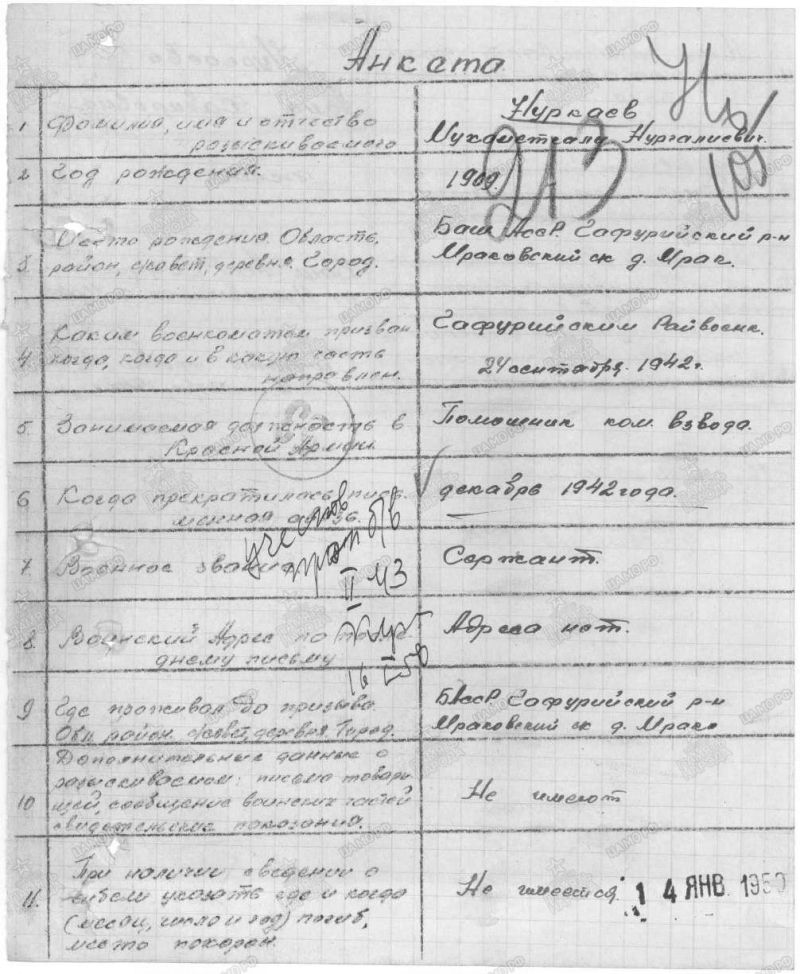 Анкета
1 Фамилия, имя и отчество
разыскиваемого
Нуркаев
Мухаметгали Нургалиевич.
Нц
213
101
2 Год рождения.
1909.
3 Место рождения. Область,
район, с/совет, деревня. Город.
Баш. АССР. Гафурийский р-н
Мраковский с/с д. Мрак.
4 Каким военкоматом призван
когда, когда и в какую часть
направлен.
Гафурийским Райвоенк.
24 сентября. 1942г.
5. Занимаемая должность в
Красной Армии.
Помошник ком. взвода.
6 Когда прекратилась пись
менная связь.
декабрь 1942 года.
учесть
проп б/в
II 43
16 I 50
7. Военное звание
Сержант.
8. Воинский Адрес по после
днему письму
Адреса нет.
9 Где проживал до призыва.
Обл. район. с/совет, деревня. Город.
БАССР. Гафурийский р-н
Мраковский с/с д. Мрако
10 Дополнительные данные о
разыскиваемом: письма товари
щей, сообщение воинских частей
свидетельские показания.
Не имеют
11. При наличии сведении о
гибели указать где и когда
(месяц, число и год) погиб,
место похорон.
Не имеется.
14 ЯНВ 1950
ЦАМО РФ